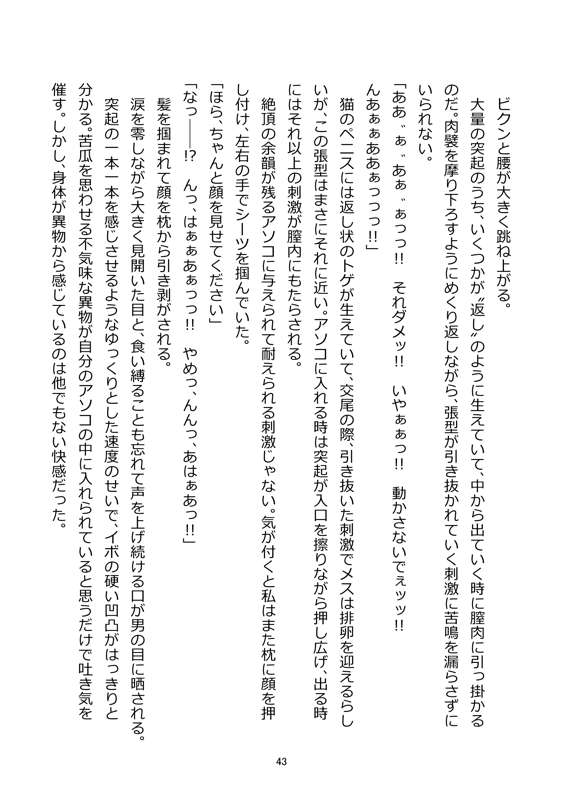 ビクンと腰が大きく跳ね上がる。
大量の突起のうち、いくつかが〝返し〟のように生えていて、中から出ていく時に膣肉に引っ掛かる
のだ。肉襞を摩り下ろすようにめくり返しながら、張型が引き抜かれていく刺激に苦鳴を漏らさずに
いられない。
「ああ゛ぁ゛あぁ゛ぁっっ!!　それダメッ!!　いやぁぁっ!!　動かさないでぇッッ!!
んあぁぁああぁっっっ!!」
猫のペニスには返し状のトゲが生えていて、交尾の際、引き抜いた刺激でメスは排卵を迎えるらし
いが、この張型はまさにそれに近い。アソコに入れる時は突起が入口を擦りながら押し広げ、出る時
にはそれ以上の刺激が膣内にもたらされる。
絶頂の余韻が残るアソコに与えられて耐えられる刺激じゃない。気が付くと私はまた枕に顔を押
し付け、左右の手でシーツを掴んでいた。
「ほら、ちゃんと顔を見せてください」
「なっ――!?　んっ、はぁぁあぁっっ!!　やめっ、んんっ、あはぁあっ!!」
髪を掴まれて顔を枕から引き剥がされる。
涙を零しながら大きく見開いた目と、食い縛ることも忘れて声を上げ続ける口が男の目に晒される。
突起の一本一本を感じさせるようなゆっくりとした速度のせいで、イボの硬い凹凸がはっきりと
分かる。苦瓜を思わせる不気味な異物が自分のアソコの中に入れられていると思うだけで吐き気を
催す。しかし、身体が異物から感じているのは他でもない快感だった。
43